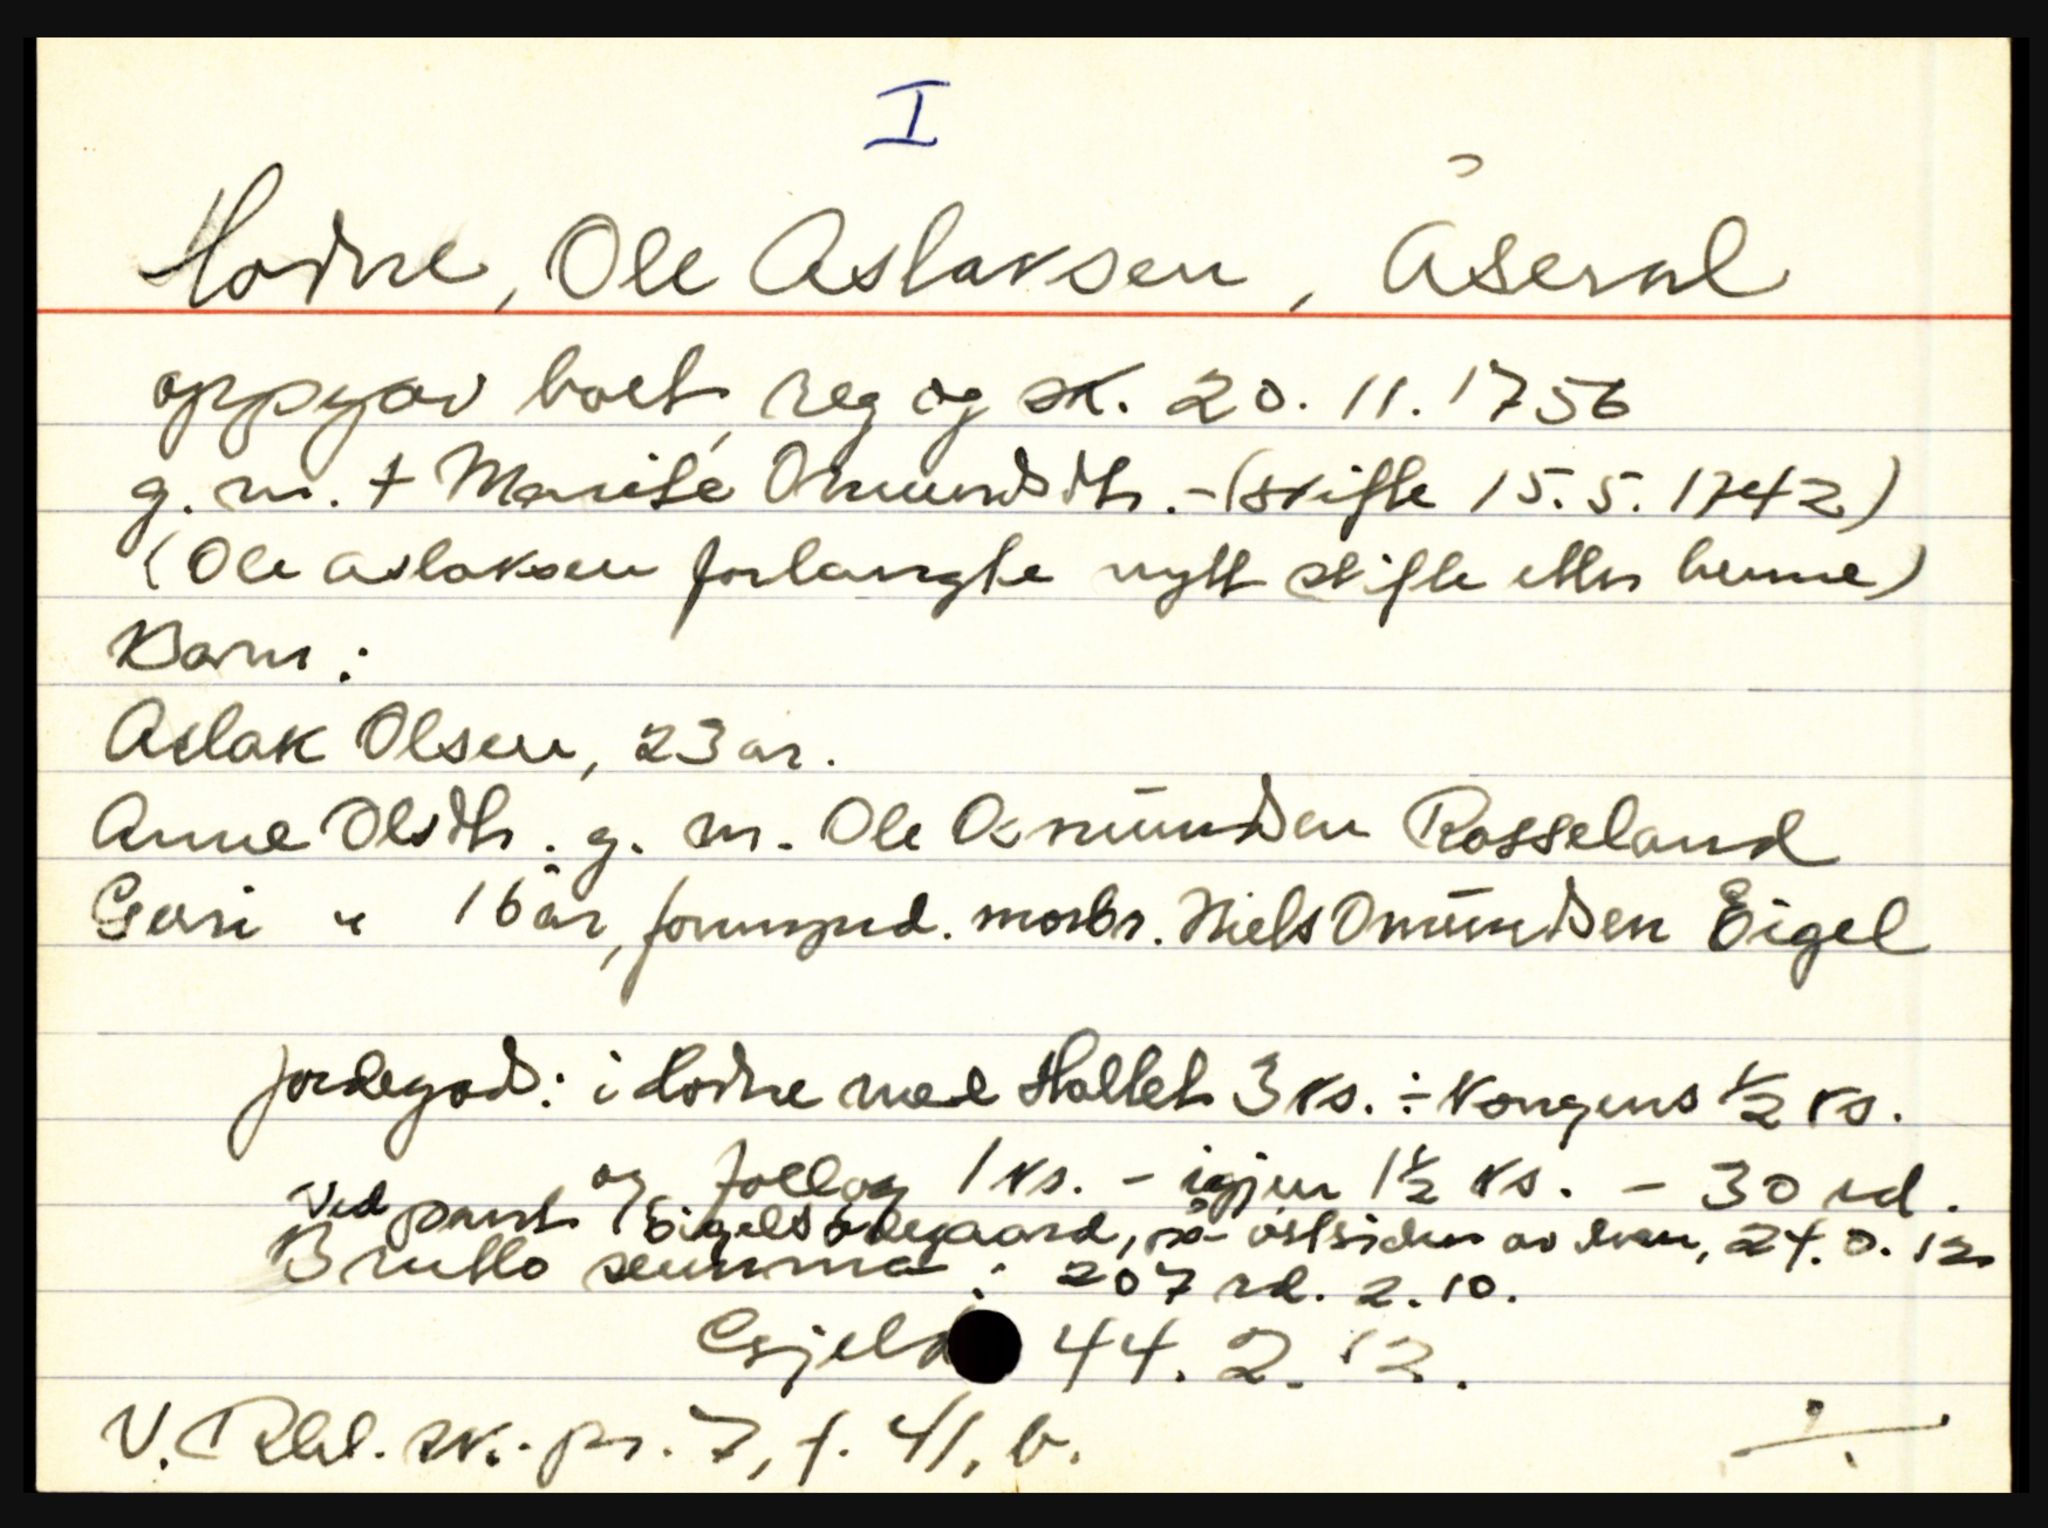 I
Hodne, Ole Aslaksen, Åseral
oppgav boet, reg og sk. 20.11.1756
g. m. + Marite Omundsdtr. - (skifte 15.5.1742)
(Ole Aslaksen forlangte nytt skifte etter henne)
Barn:
Aslak Olsen, 23 år.
Anne Olsdtr. g. m. Ole Osmundsen Rosseland
Guri " 16 år, formynd. morbr. Niels Omundsen Eigel
Jordegods: i Hodne med Hallet 3 ks. ÷ Kongens ½ ks.
og 1 ks. - igjen 1½ ks. - 30 rd.
Ved pant i Eigels ødegaard, på østsiden av elven, 24.0.12
Brutto summa: 207 rd. 2.10.
Gjeld 44.2.12.
V. Rbd. sk. pr. 7, f. 41, b.
÷